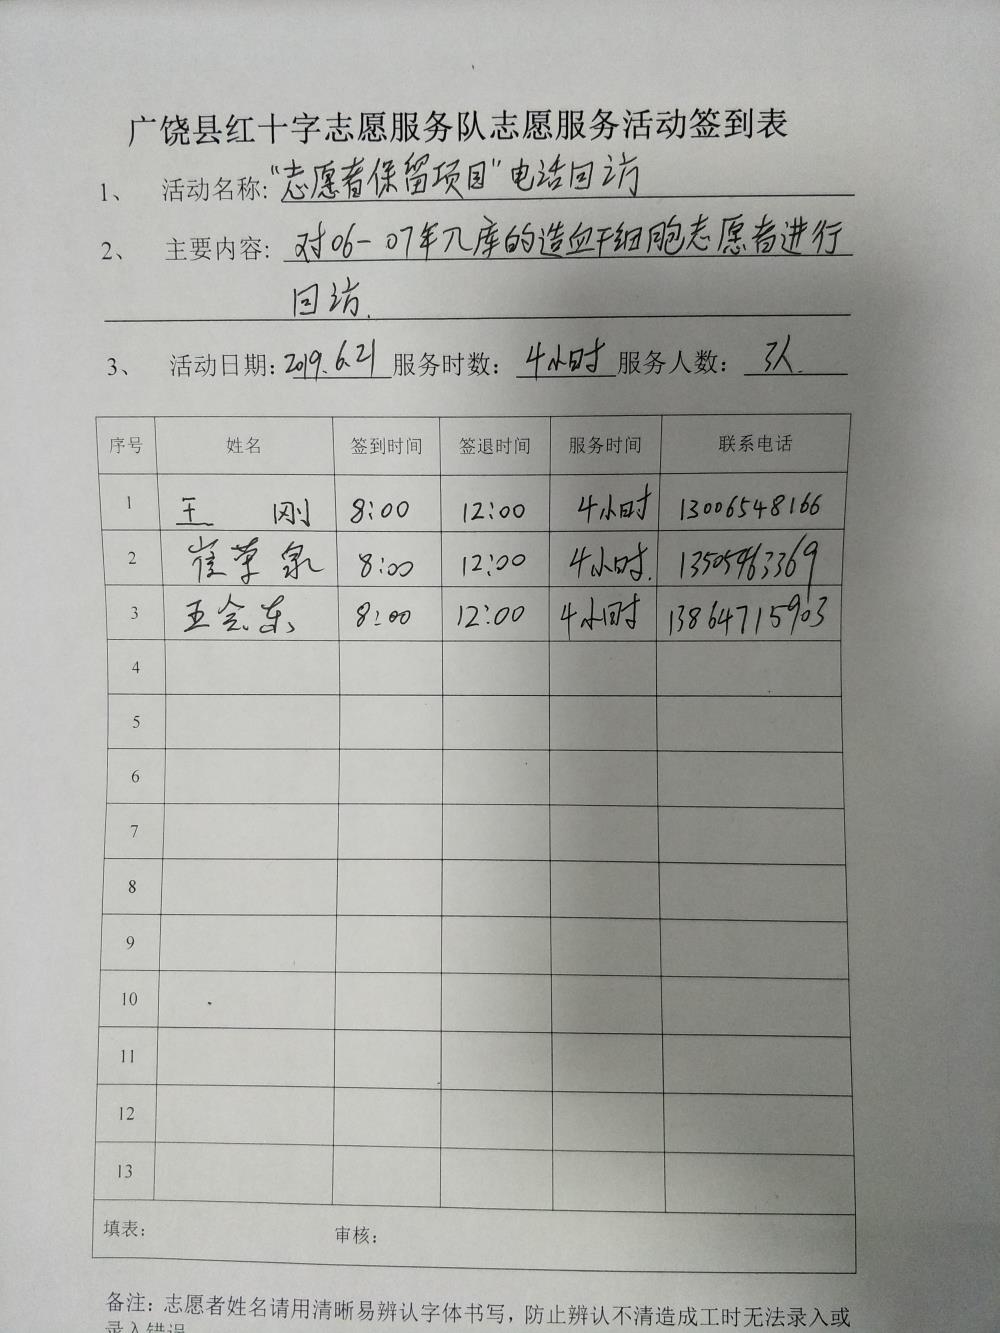 广饶县红十字志愿服务队志愿服务活动签到表
1、 活动名称:"志愿者保留项目"电话回访
2、 主要内容: 对06-07年入库的造血干细胞志愿者进行
回访.
3、 活动日期: 2019.6.21 服务时数: 4小时 服务人数: 3人.
序号 姓名 签到时间 签退时间 服务时间 联系电话
1 王 刚 8:00 12:00 4小时 13006548166
2 崔草泉 8:00 12:00 4小时. 13505463369
3 王会东 8:00 12:00 4小时 13864715903
4
5
6
7
8
9
10
11
12
13
填表: 审核:
备注: 志愿者姓名请用清晰易辨认字体书写, 防止辨认不清造成工时无法录入或
录入错误